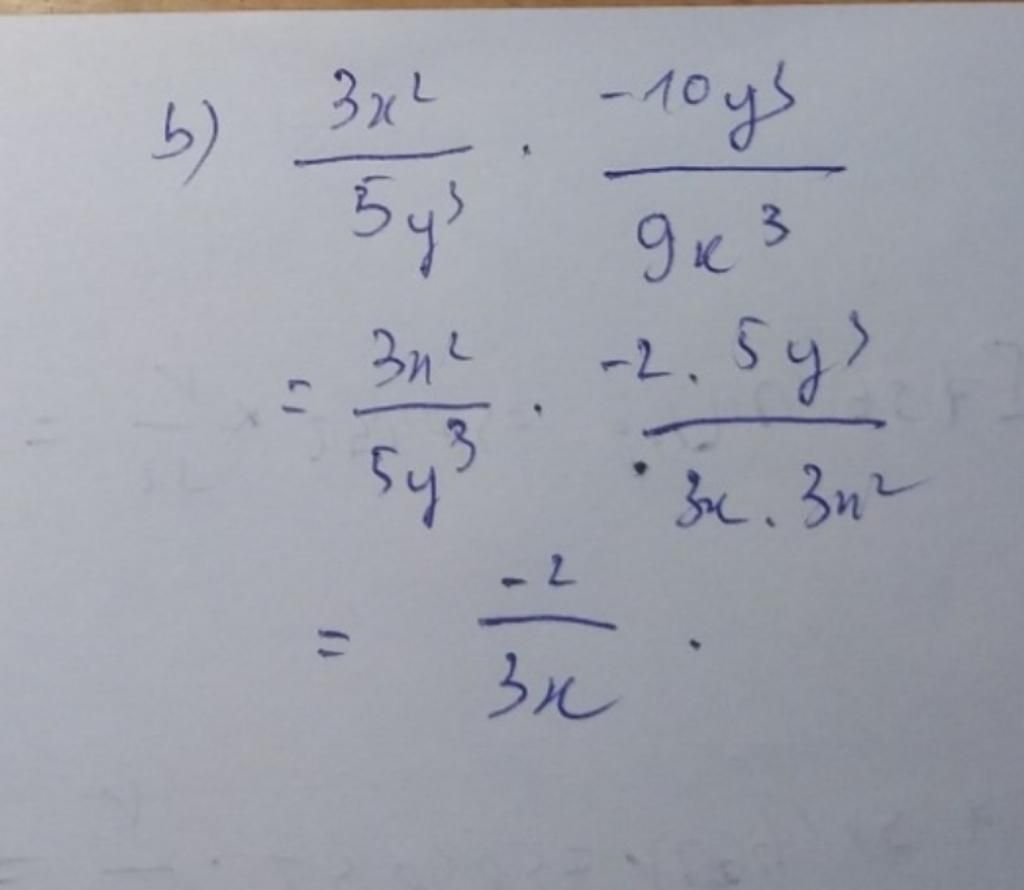 b) \frac{3x^2}{5y^3} . \frac{-10y^3}{9x^3}
= \frac{3x^2}{5y^3} . \frac{-2 . 5y^3}{3x . 3x^2}
= \frac{-2}{3x} .